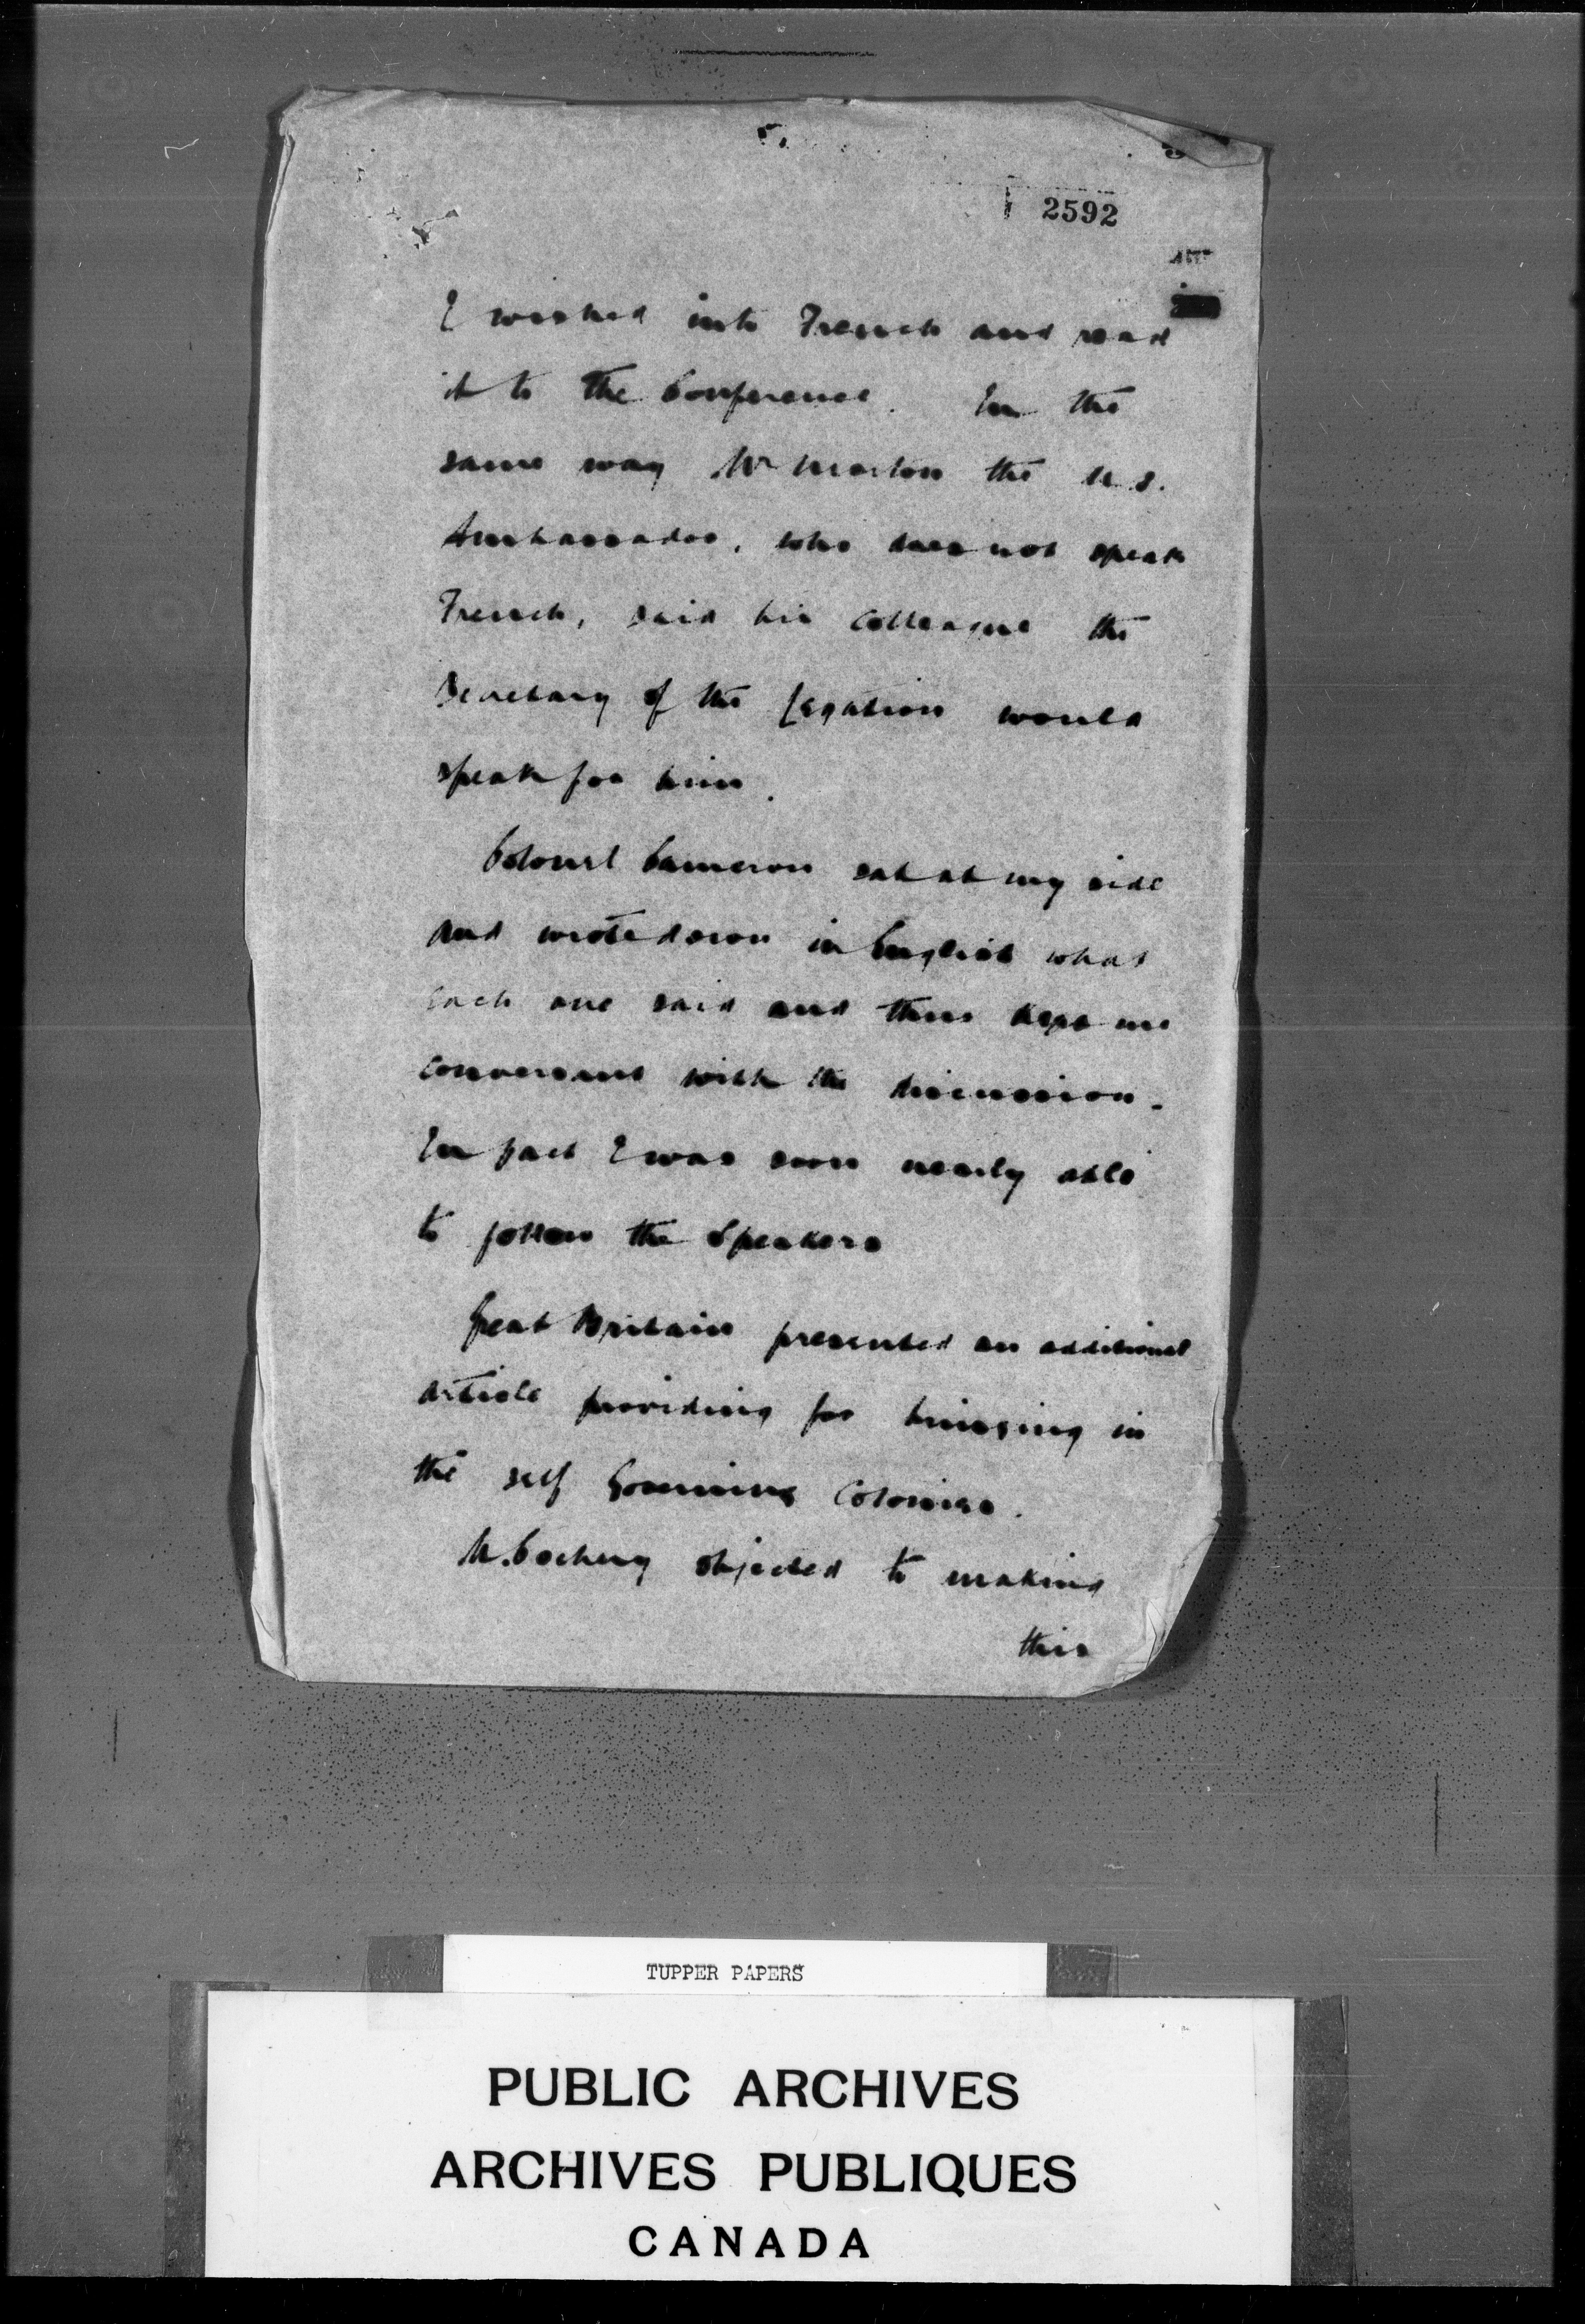 5.
2592
I wished into French and read
it to the Conference. In the
same way Mr Morton the U.S.
Ambassador, who does not speak
French, said his colleague the
Secretary of the Legation would
speak for him.
Colonel Cameron sat at my side
and wrote down in English what
each one said and thus kept me
conversant with the discussion.
In fact I was soon nearly able
to follow the Speakers
Great Britain presented an additional
article providing for bringing in
the self Governing Colonies.
M. Cochery objected to making
this
TUPPER PAPERS
PUBLIC ARCHIVES
ARCHIVES PUBLIQUES
CANADA